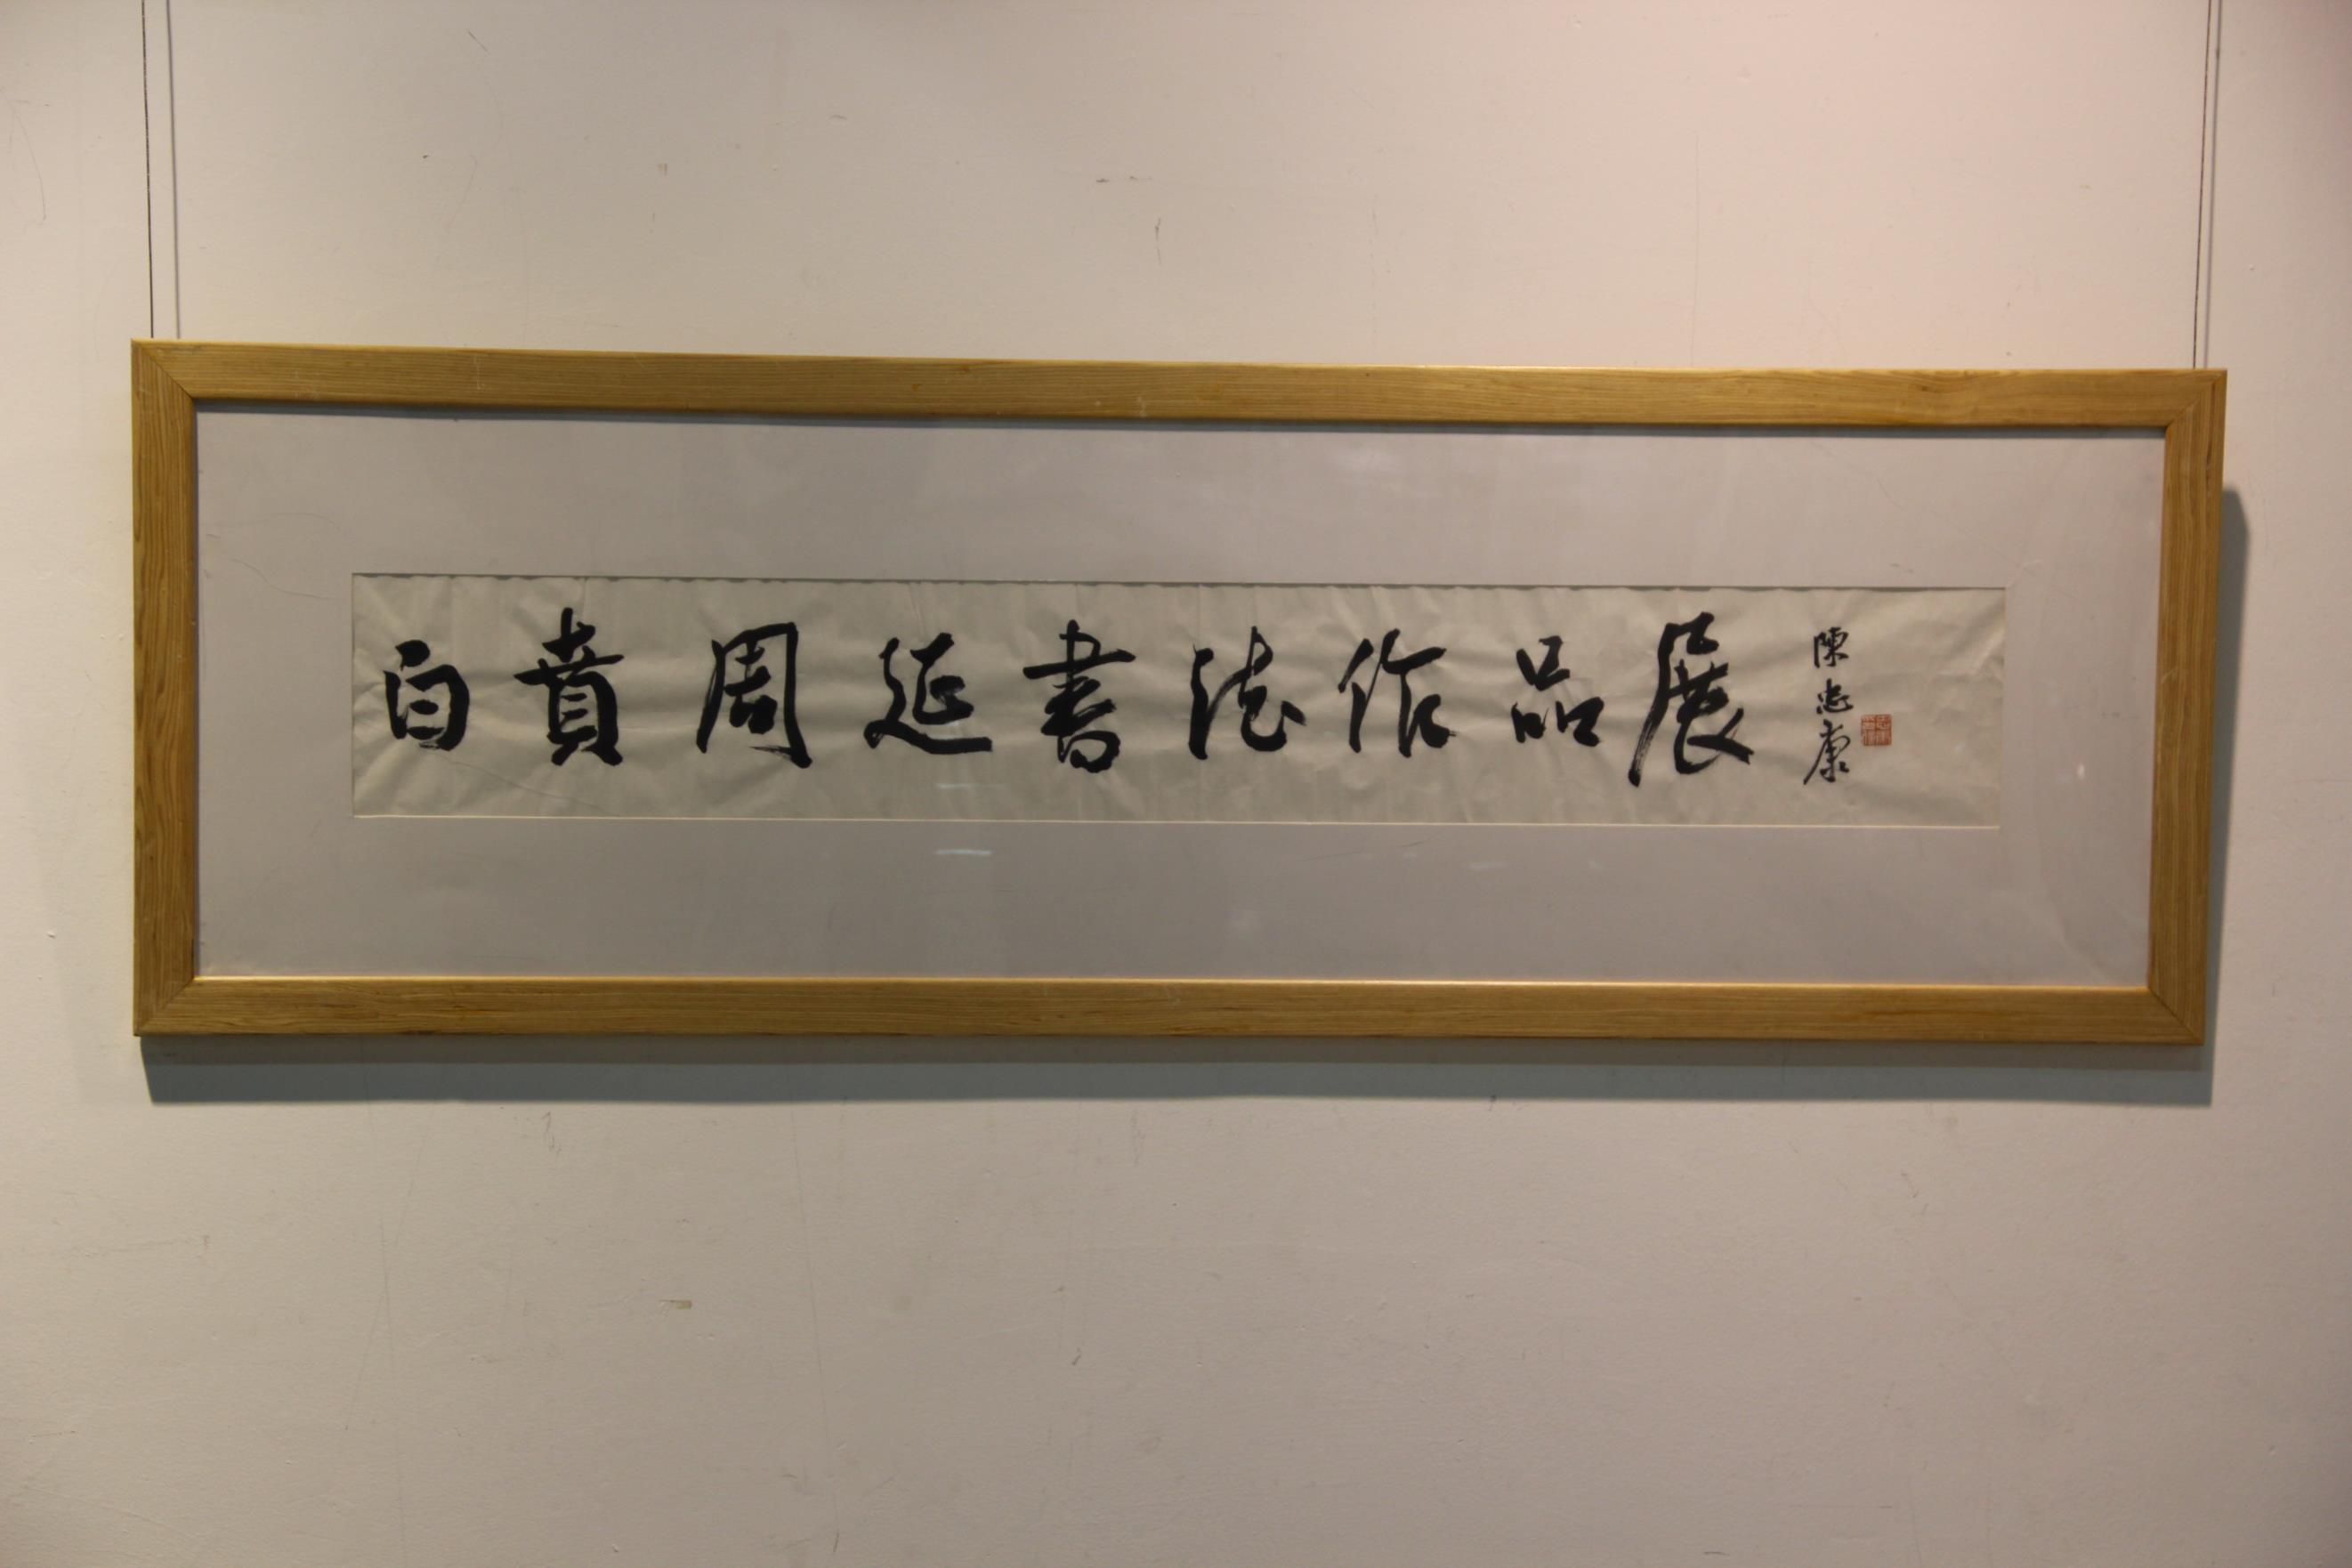 白賁周延書法作品展
陳忠康